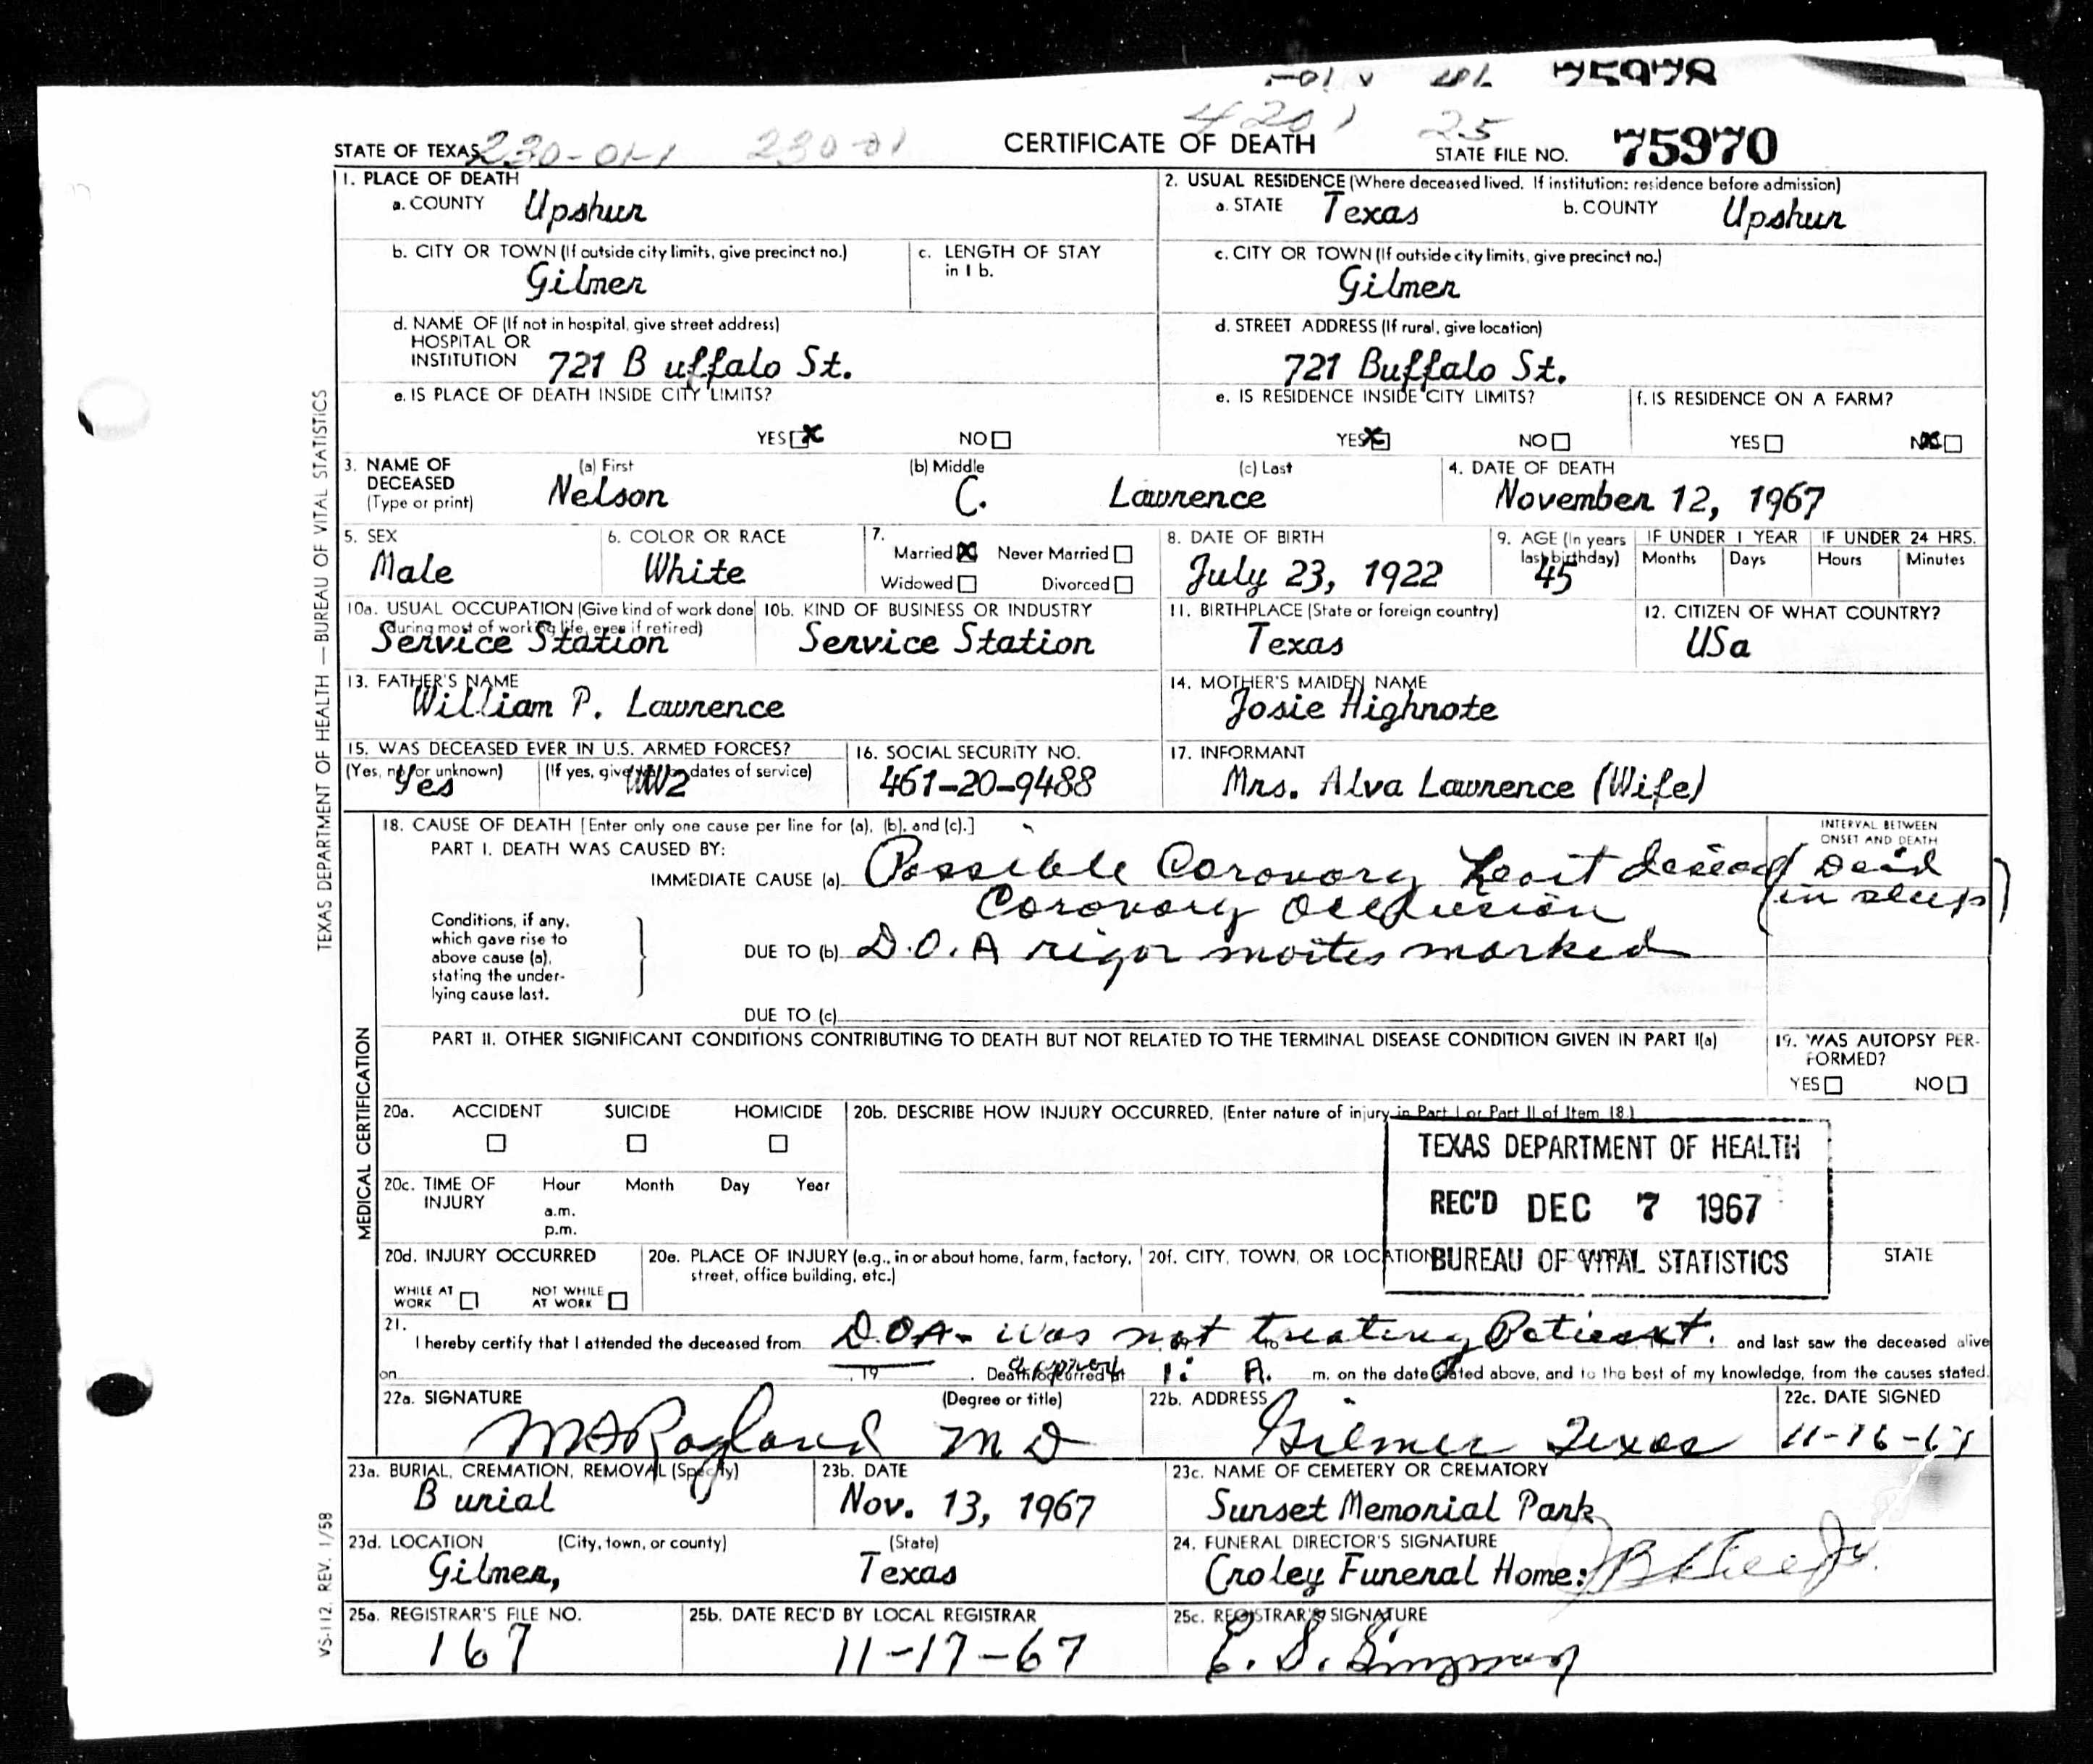 75978
4201 25
STATE OF TEXAS 230-01-1 230-01 CERTIFICATE OF DEATH STATE FILE NO. 75970
1. PLACE OF DEATH
a. COUNTY Upshur
2. USUAL RESIDENCE (Where deceased lived. If institution: residence before admission)
a. STATE Texas b. COUNTY Upshur
b. CITY OR TOWN (If outside city limits, give precinct no.)
Gilmer
c. LENGTH OF STAY
in 1 b.
c. CITY OR TOWN (If outside city limits, give precinct no.)
Gilmer
d. NAME OF (If not in hospital, give street address)
HOSPITAL OR
INSTITUTION 721 B uffalo St.
d. STREET ADDRESS (If rural, give location)
721 Buffalo St.
e. IS PLACE OF DEATH INSIDE CITY LIMITS?
YES X NO
e. IS RESIDENCE INSIDE CITY LIMITS?
YES X NO
f. IS RESIDENCE ON A FARM?
YES NO X
3. NAME OF
DECEASED
(Type or print)
(a) First (b) Middle (c) Last
Nelson C. Lawrence
4. DATE OF DEATH
November 12, 1967
5. SEX
Male
6. COLOR OR RACE
White
7.
Married X Never Married
Widowed Divorced
8. DATE OF BIRTH
July 23, 1922
9. AGE (In years
last birthday)
45
IF UNDER 1 YEAR
Months Days
IF UNDER 24 HRS.
Hours Minutes
10a. USUAL OCCUPATION (Give kind of work done
during most of working life, even if retired)
Service Station
10b. KIND OF BUSINESS OR INDUSTRY
Service Station
11. BIRTHPLACE (State or foreign country)
Texas
12. CITIZEN OF WHAT COUNTRY?
USa
13. FATHER'S NAME
William P. Lawrence
14. MOTHER'S MAIDEN NAME
Josie Highnote
15. WAS DECEASED EVER IN U.S. ARMED FORCES?
(Yes, no, or unknown) (If yes, give war or dates of service)
Yes WW2
16. SOCIAL SECURITY NO.
461-20-9488
17. INFORMANT
Mrs. Alva Lawrence (Wife)
18. CAUSE OF DEATH [Enter only one cause per line for (a), (b), and (c).]
PART I. DEATH WAS CAUSED BY:
IMMEDIATE CAUSE (a) Possible Coronory Heart disease
Coronory Occlusion
INTERVAL BETWEEN
ONSET AND DEATH
(Died
in sleep)
Conditions, if any,
which gave rise to
above cause (a),
stating the under-
lying cause last.
DUE TO (b) D.O.A rigor mortes marked
DUE TO (c)
PART II. OTHER SIGNIFICANT CONDITIONS CONTRIBUTING TO DEATH BUT NOT RELATED TO THE TERMINAL DISEASE CONDITION GIVEN IN PART I(a)
19. WAS AUTOPSY PER-
FORMED?
YES NO
20a. ACCIDENT SUICIDE HOMICIDE
20b. DESCRIBE HOW INJURY OCCURRED. (Enter nature of injury in Part I or Part II of Item 18.)
20c. TIME OF
INJURY
Hour Month Day Year
a.m.
p.m.
TEXAS DEPARTMENT OF HEALTH
REC'D DEC 7 1967
BUREAU OF VITAL STATISTICS
20d. INJURY OCCURRED
WHILE AT
WORK
NOT WHILE
AT WORK
20e. PLACE OF INJURY (e.g., in or about home, farm, factory,
street, office building, etc.)
20f. CITY, TOWN, OR LOCATION STATE
21.
I hereby certify that I attended the deceased from D.O.A- was not treating Patient. and last saw the deceased alive
on , 19 . Death occurred at 1: A. m. on the date stated above, and to the best of my knowledge, from the causes stated.
22a. SIGNATURE (Degree or title)
Ragland M D
22b. ADDRESS
Gilmer Texas
22c. DATE SIGNED
11-16-67
23a. BURIAL, CREMATION, REMOVAL (Specify)
B urial
23b. DATE
Nov. 13, 1967
23c. NAME OF CEMETERY OR CREMATORY
Sunset Memorial Park
23d. LOCATION (City, town, or county) (State)
Gilmer, Texas
24. FUNERAL DIRECTOR'S SIGNATURE
Croley Funeral Home:
25a. REGISTRAR'S FILE NO.
167
25b. DATE REC'D BY LOCAL REGISTRAR
11-17-67
25c. REGISTRAR'S SIGNATURE
E. S.
TEXAS DEPARTMENT OF HEALTH — BUREAU OF VITAL STATISTICS
MEDICAL CERTIFICATION
VS-112, REV. 1/58